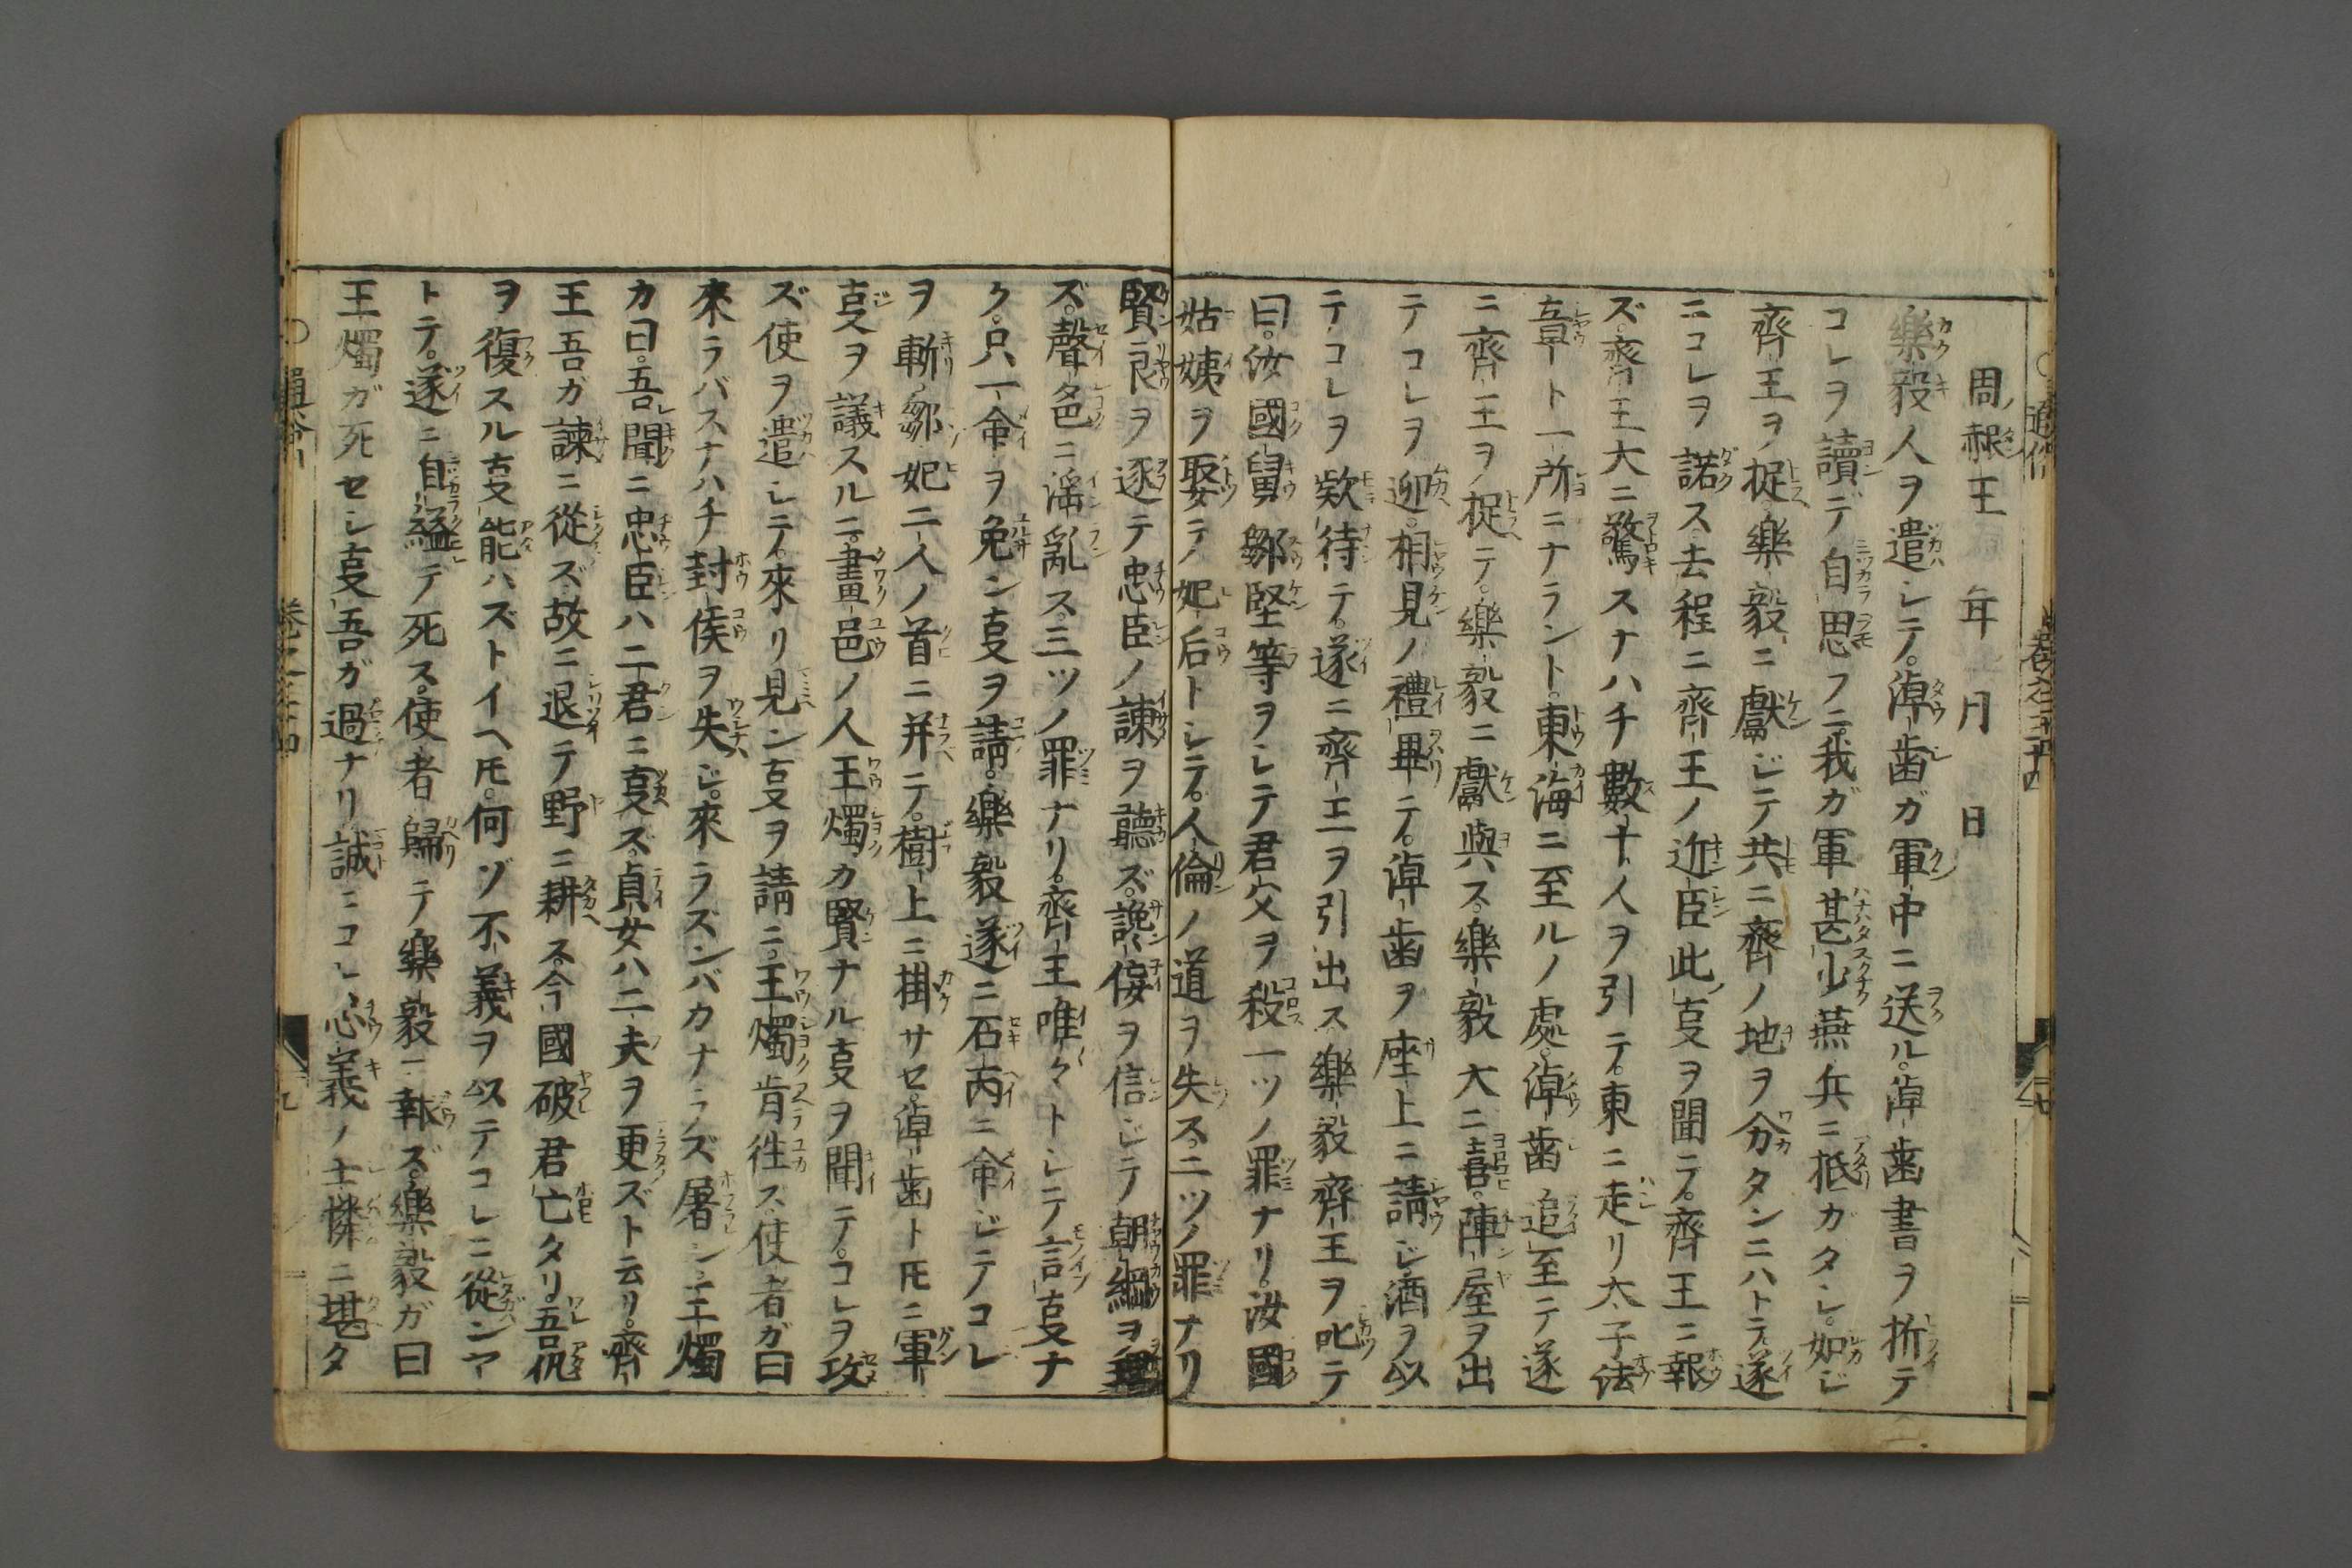 周ノ赧王　年　月　日
樂毅人ヲ遣シテ。淖歯ガ軍中ニ送ル。淖歯書ヲ折テ
コレヲ讀デ自思フニ。我ガ軍甚少燕兵ニ抵ガタシ。如ジ
齊王ヲ捉樂毅ニ獻ジテ共ニ齊ノ地ヲ分タンニハトテ。遂
ニコレヲ諾ス去程ニ齊王ノ近臣此ノ叓ヲ聞テ。齊王ニ報
ズ。齊王大ニ驚スナハチ數十人ヲ引テ。東ニ走リ太子法
章ト一所ニナラント。東海ニ至ルノ處。淖歯追至テ遂
ニ齊王ヲ捉テ。樂毅ニ獻與ス。樂毅大ニ喜。陣屋ヲ出
テコレヲ迎。相見ノ禮畢テ。淖歯ヲ座上ニ請ジ酒ヲ以
テコレヲ欵待テ。遂ニ齊王ヲ引出ス樂毅齊王ヲ叱テ
曰。汝國舅鄒堅等ヲシテ君父ヲ殺一ツノ罪ナリ。汝國
姑姨ヲ娶テ妃后トシテ。人倫ノ道ヲ失ス二ツノ罪ナリ
賢良ヲ逐テ忠臣ノ諫ヲ聽ズ。讒侫ヲ信ジテ朝綱ヲ理
ズ。聲色ニ滛亂ス三ツノ罪ナリ。齊王唯々トシテ言叓ナ
ク。只一命ヲ免ン叓ヲ請。樂毅遂ニ石丙ニ命ジテコレ
ヲ斬鄒妃二人ノ首ニ并テ。樹上ニ掛サセ。淖歯ト𪜈ニ軍
叓ヲ議スルニ。畫邑ノ人王燭カ賢ナル叓ヲ聞テ。コレヲ攻
ズ使ヲ遣シテ。來リ見ン叓ヲ請ニ。王燭肯徃ス使者ガ曰
來ラバスナハチ封侯ヲ失ジ。來ラズンバカナラズ屠ン王燭
カ曰。吾聞ニ忠臣ハ二君ニ叓ズ。貞女ハ二夫ヲ更ズト云リ。齊
王吾ガ諫ニ從ズ故ニ退テ野ニ耕ス。今國破君亡タリ。吾仇
ヲ復スル叓能ハズトイヘ𪜈。何ゾ不義ヲ以テコレニ從ンヤ
トテ。遂ニ自縊テ死ス。使者歸テ樂毅ニ報ズ。樂毅ガ曰
王燭ガ死セシ叓吾ガ過ナリ誠ニコレ忠義ノ士憐ニ堪タ